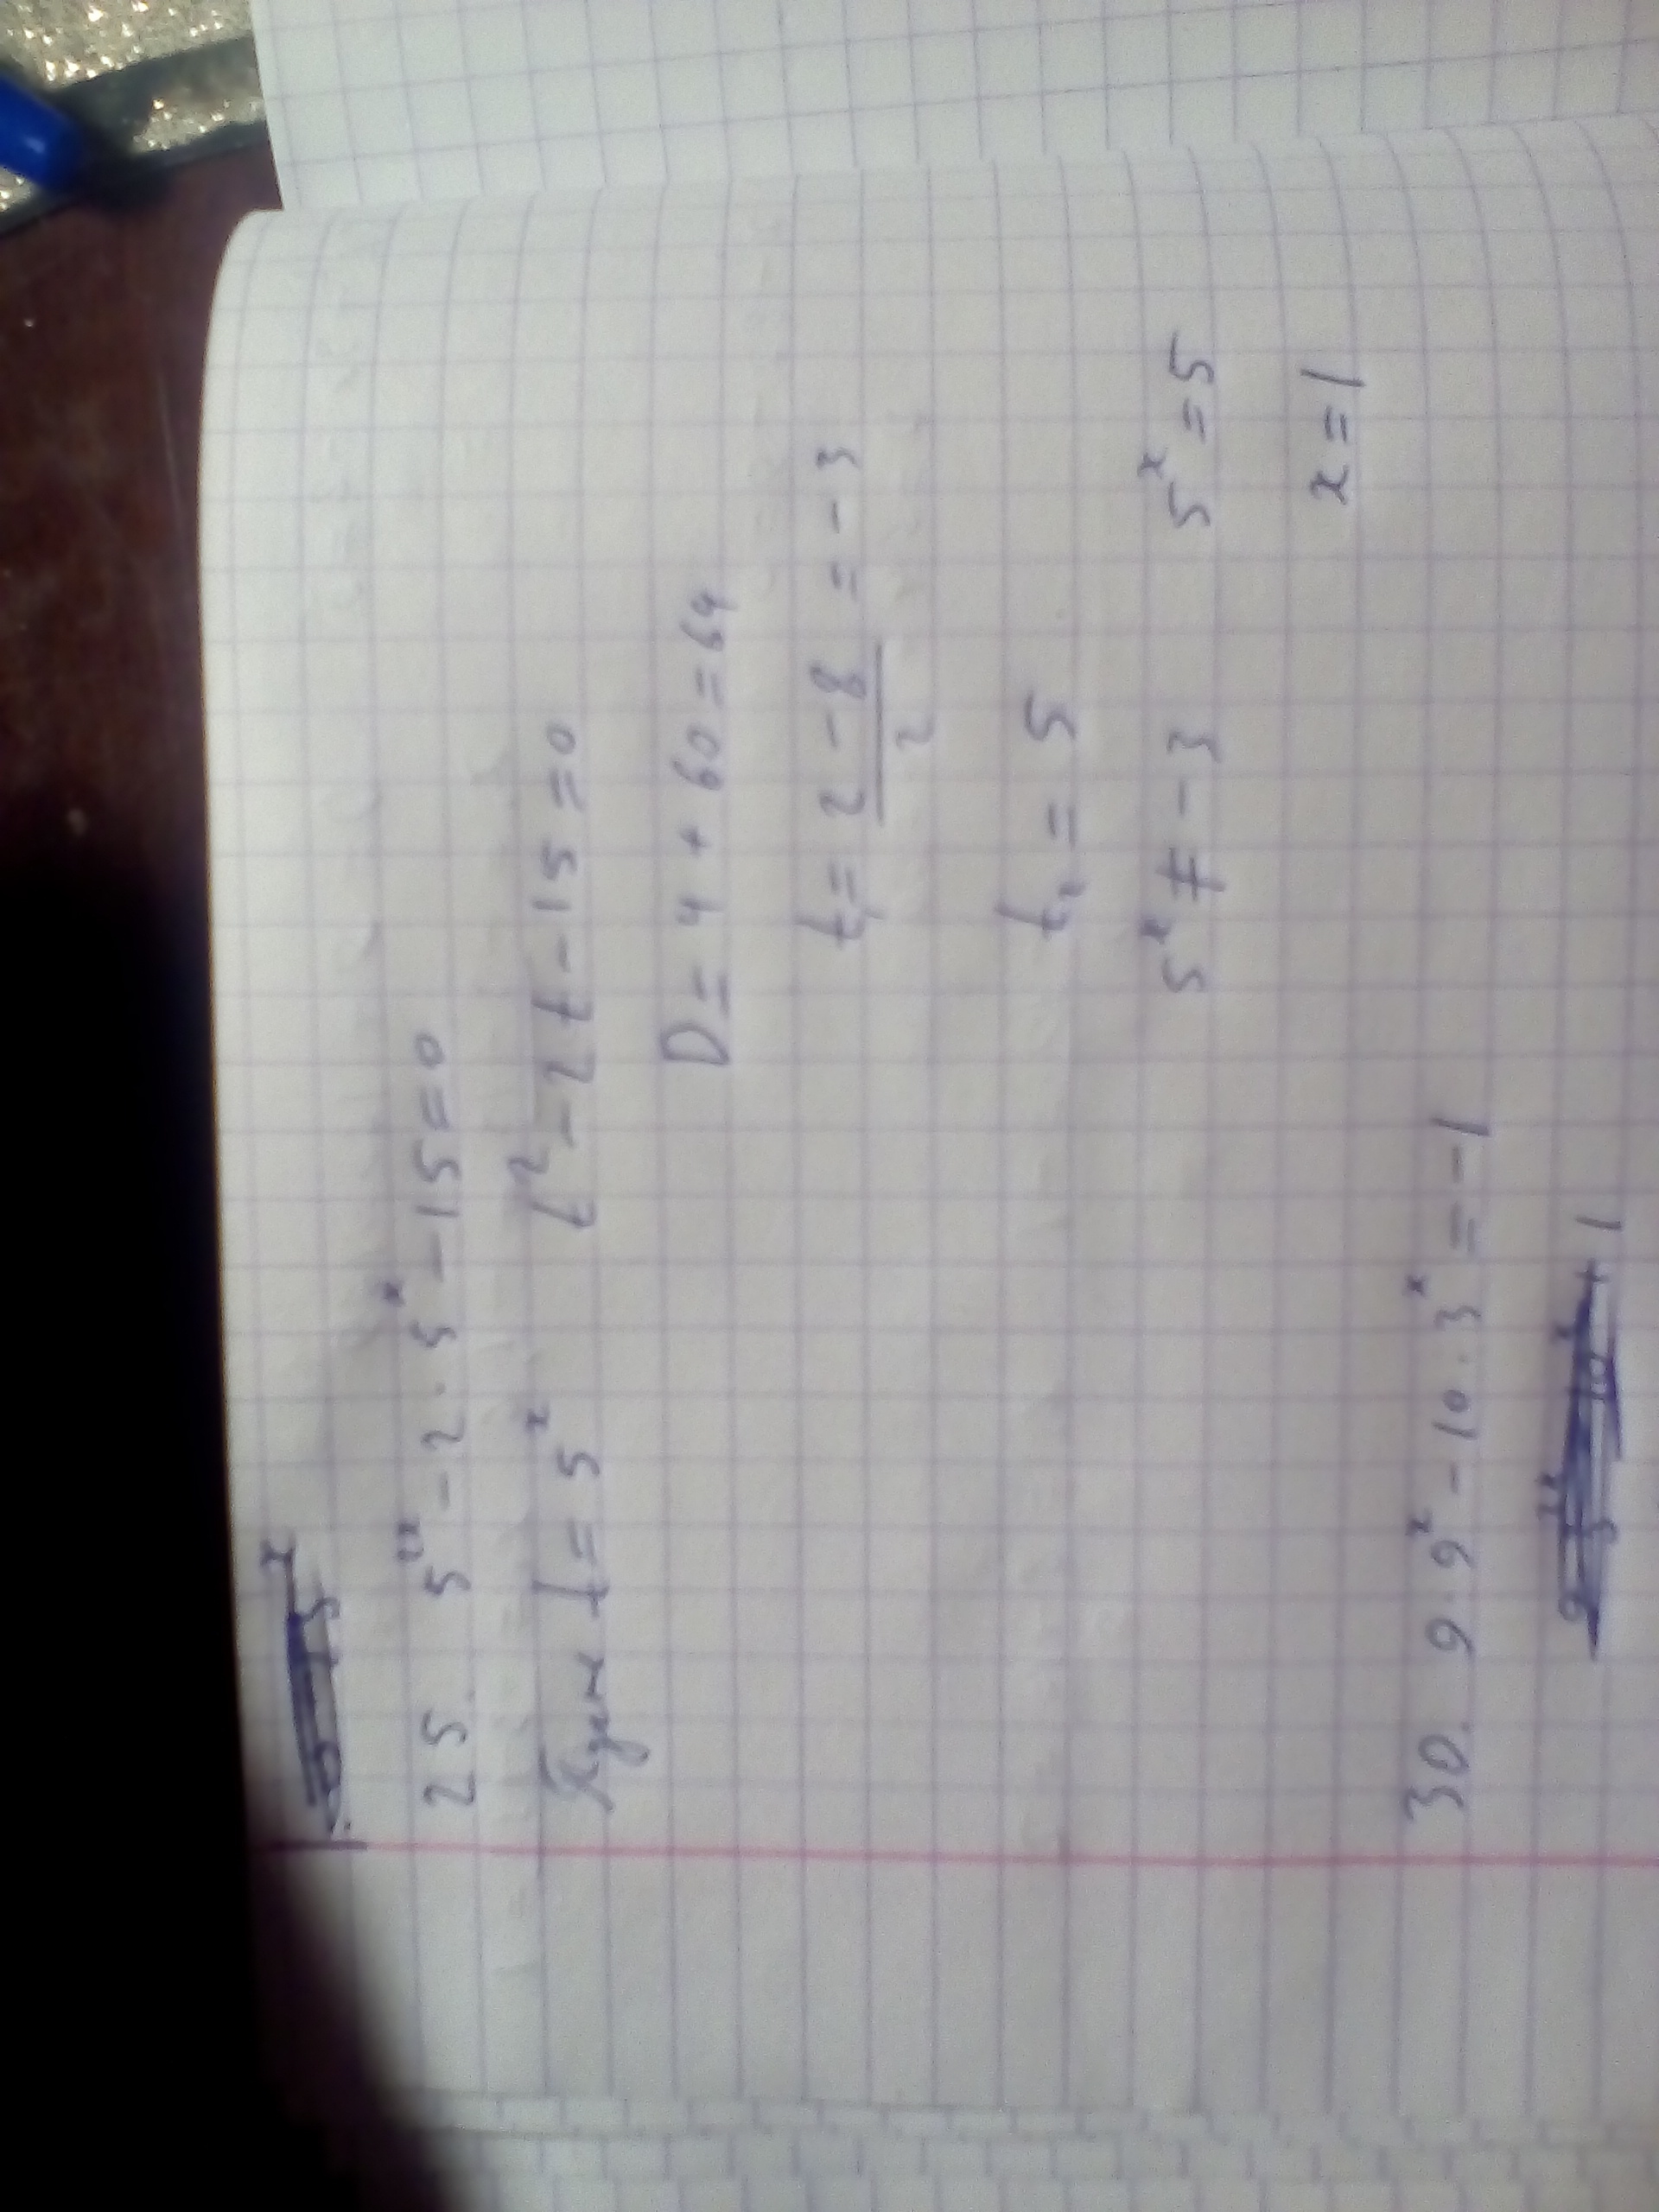 25. 5²ˣ - 2 · 5ˣ - 15 = 0
Пусть t = 5ˣ t² - 2t - 15 = 0
D = 4 + 60 = 64
t₁ = (2 - 8)/2 = -3
t₂ = 5
5ˣ ≠ -3 5ˣ = 5
x = 1
30. 9 · 9ˣ - 10 · 3ˣ = -1
+ 1